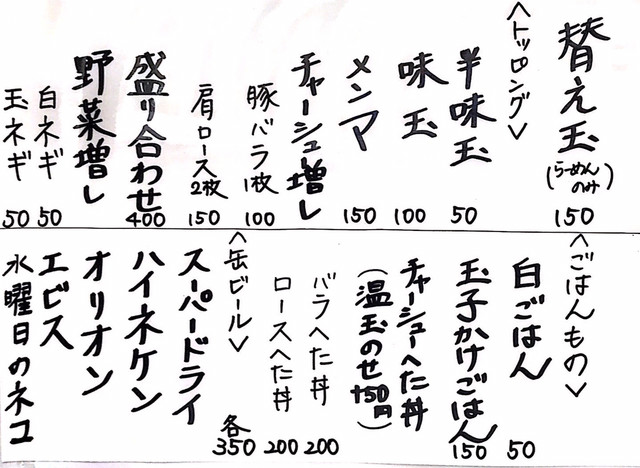 替え玉
(らーめんのみ)
150
<トッピング>
半味玉
50
味玉
100
メンマ
150
チャーシュー増し
豚バラ1枚
100
肩ロース2枚
150
盛り合わせ
400
野菜増し
白ネギ
50
玉ネギ
50
<ごはんもの>
白ごはん
50
玉子かけごはん
150
チャーシューへた丼
(温玉のせ+50円)
バラへた丼
200
ロースへた丼
200
<缶ビール>
各350
スーパードライ
ハイネケン
オリオン
エビス
水曜日のネコ